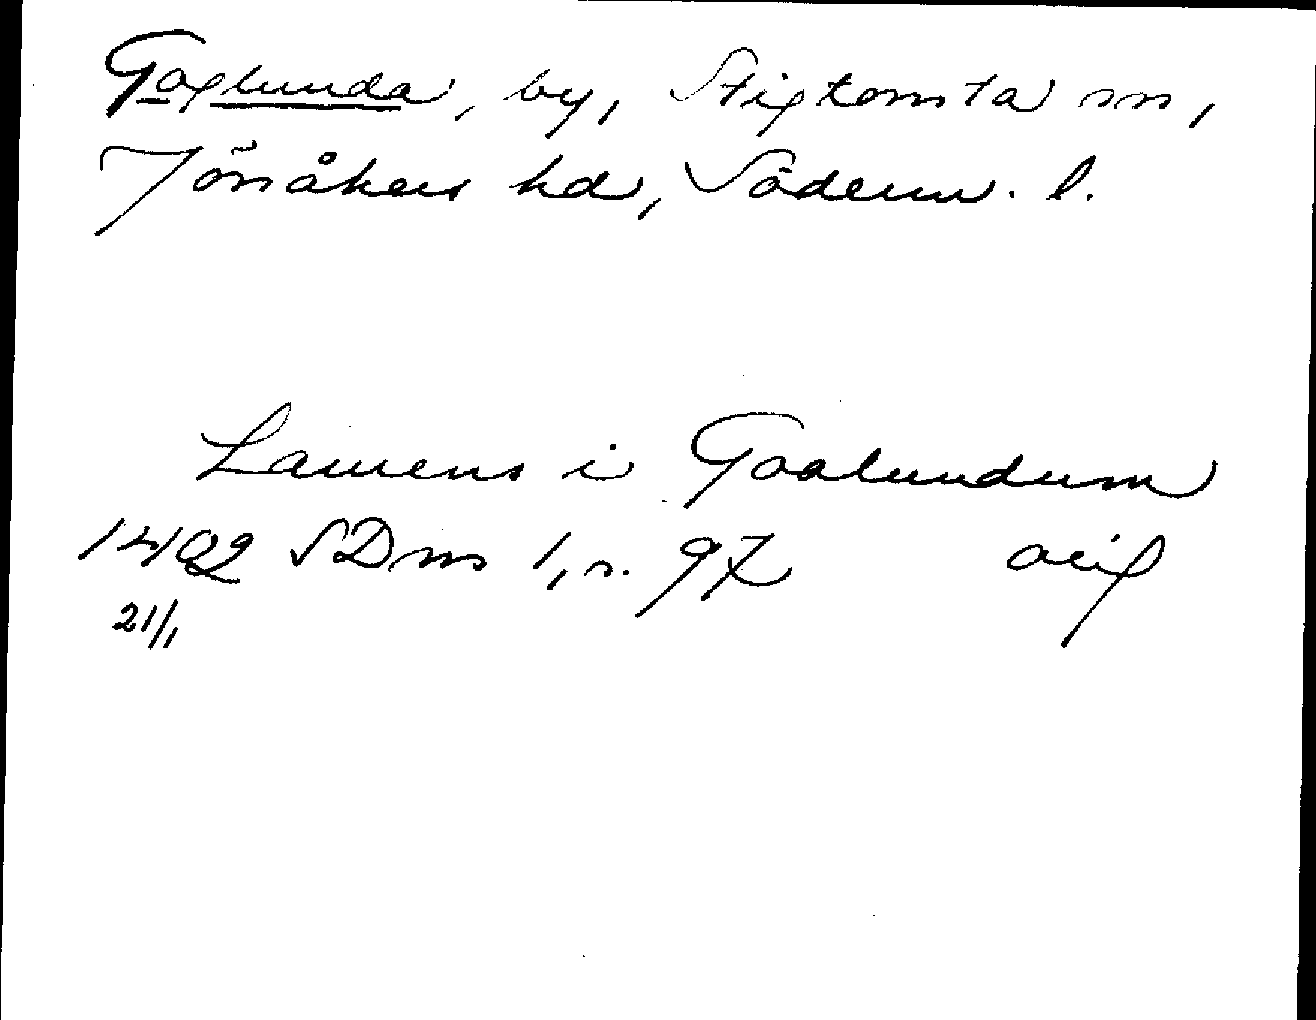 Goglunda, by, Stigtomta sn,
Jönåkers hd, Söderm. l.
Laurens i Goalundum
1402 SDns 1, s. 97 orig
21/1